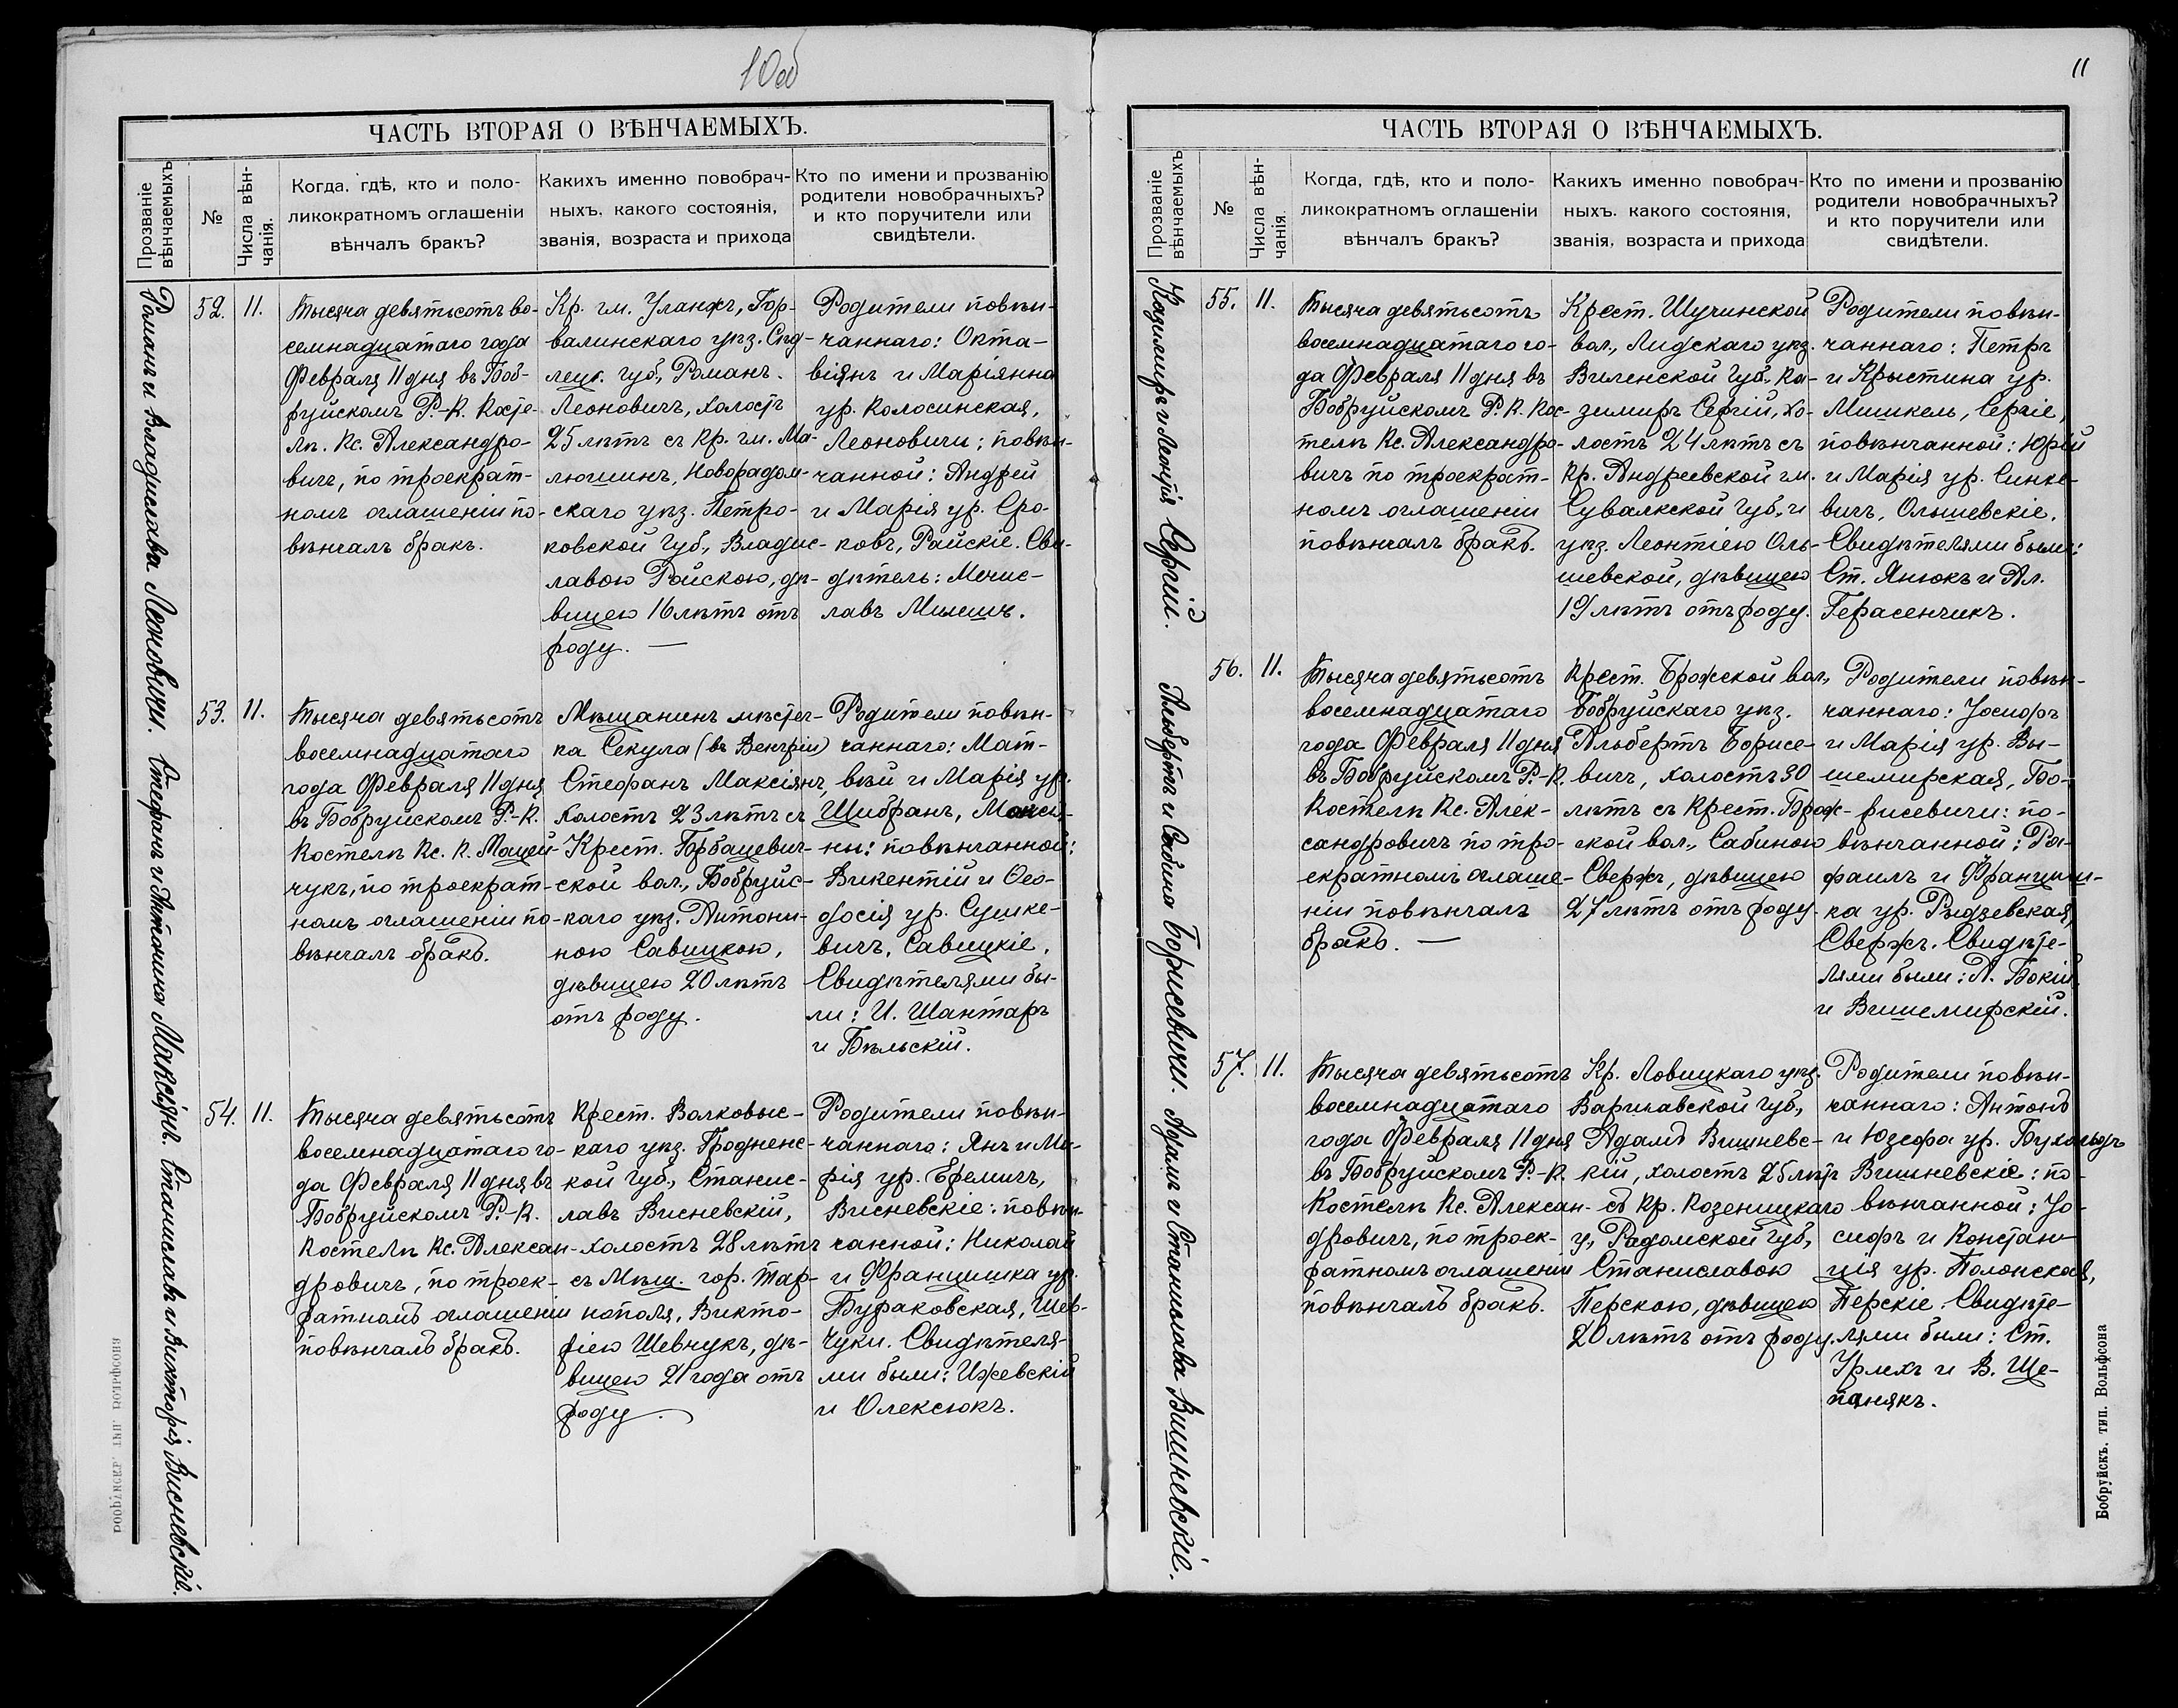 10об
ЧАСТЬ ВТОРАЯ О ВѢНЧАЕМЫХЪ.
Прозваніе
вѣнчаемыхъ
№
Числа вѣн-
чанія.
Когда, гдѣ, кто и поло-
ликократномъ оглашеніи
вѣнчалъ бракъ?
Какихъ именно повобрач-
ныхъ, какого состоянія,
званія, возраста и прихода
Кто по имени и прозванію
родители новобрачныхъ?
и кто поручители или
свидѣтели.
Романъ и Владислава Леоновичи.
52.
11.
Тысяча девятьсотъ во-
семнадцатаго года
Февраля 11 дня въ Боб-
руйскомъ Р.-К. Косте-
лѣ. Кс. Александро-
вичъ, по троекрат-
номъ оглашеніи по-
вѣнчалъ бракъ.
Кр. гм. Уланжъ, Гор-
валинскаго уѣз. Сѣд-
лец. губ., Романъ
Леоновичъ, холостъ
25 лѣтъ съ Кр. гм. Ма-
люшинъ, Новорадом-
скаго уѣз. Петро-
ковской Губ., Владис-
лавою Райскою, дѣ-
вицею 16 лѣтъ отъ
роду. —
Родители повѣн-
чаннаго: Окта-
віянъ и Маріянна
ур. Колосинская,
Леоновичи; повѣн-
чанной: Андрей
и Марія ур. Сро-
ковъ, Райскіе. Сви-
дѣтель: Мечис-
лавъ
Стефанъ и Антонина Максіянъ.
53.
11.
Тысяча девятьсотъ
восемнадцатаго
года Февраля 11 дня
въ Бобруйскомъ Р.-К.
Костелѣ Кс. К. Мацей-
чукъ, по троекрат-
номъ оглашеніи по-
вѣнчалъ бракъ.
Мѣщанинъ мѣстеч-
ка Секула (въ Венгріи)
Стефанъ Максіянъ,
холостъ 23 лѣтъ съ
Крест. Горбацевич-
ской вол., Бобруйс-
каго уѣз. Антони-
ною Савицкою,
дѣвицею 20 лѣтъ
отъ роду.
Родители повѣн-
чаннаго: Мат-
вѣй и Марія ур.
Шибранъ, Максія-
ны: повѣнчанной:
Викентій и Ѳео-
досія ур. Сушке-
вичъ, Савицкіе,
Свидѣтелями бы-
ли: И. Шантаръ
и Бѣльскій.
Станиславъ и Викторія Висневскіе.
54.
11.
Тысяча девятьсотъ
восемнадцатаго го-
да Февраля 11 дня въ
Бобруйскомъ Р.-К.
Костелѣ Кс. Алексан-
дровичъ, по троек-
ратномъ оглашеніи
повѣнчалъ бракъ.
Крест. Волковыс-
каго уѣз. Гродненс-
кой Губ., Станис-
лавъ Висневскій,
холостъ 28 лѣтъ
съ Мѣщ. гор. Тар-
нополя, Викто-
ріею Шевчукъ, дѣ-
вицею 21 года отъ
роду.
Родители повѣн-
чаннаго: Янъ и Ма-
рія ур. Ефемичъ,
Висневскіе: повѣн-
чанной: Николай
и Францишка ур.
Бураковская, Шев-
чуки. Свидѣтеля-
ми были: Ижевскій
и Олексюкъ.
11
ЧАСТЬ ВТОРАЯ О ВѢНЧАЕМЫХЪ.
Прозваніе
вѣнчаемыхъ
№
Числа вѣн-
чанія.
Когда, гдѣ, кто и поло-
ликократномъ оглашеніи
вѣнчалъ бракъ?
Какихъ именно повобрач-
ныхъ. какого состоянія,
званія, возраста и прихода
Кто по имени и прозванію
родители новобрачныхъ?
и кто поручители или
свидѣтели.
Казимиръ и Леонтія Сергій.
55.
11.
Тысяча девятьсотъ
восемнадцатаго го-
да Февраля 11 дня въ
Бобруйскомъ Р.К. Кос-
телѣ Кс. Александро-
вичъ по троекрат-
номъ оглашеніи
повѣнчалъ бракъ.
Крест. Щучинской
вол., Лидскаго уѣз.
Виленской Губ., Ка-
зимиръ Сергій, хо-
лостъ 24 лѣтъ съ
Кр. Андреевской гм.
Сувалкской Губ., и
уѣз. Леонтіею Оль-
шевской, дѣвицею
19 лѣтъ отъ роду.
Родители повѣн-
чаннаго: Петръ
и Крыстина ур.
Мишкель, Сергіе,
повѣнчанной: Юрій
и Марія ур. Синке-
вичъ, Ольшевскіе.
Свидѣтелями были:
Ст. Янюкъ и Ал.
Герасенчикъ.
Альбертъ и Сабина Борисевичи.
56.
11.
Тысяча девятьсотъ
восемнадцатаго
года Февраля 11 дня
въ Бобруйскомъ Р.-К.
Костелѣ Кс. Алек-
сандровичъ по тро-
екратномъ оглаше-
ніи повѣнчалъ
бракъ. —
Крест. Брожской вол.,
Бобруйскаго уѣз.
Альбертъ Борисе-
вичъ, холостъ 30
лѣтъ съ Крест. Брож-
ской вол., Сабиною
Свержъ, дѣвицею
27 лѣтъ отъ роду.
Родители повѣн-
чаннаго: Іосифъ
и Марія ур. Вы-
шемирская, Бо-
рисевичи: по-
вѣнчанной: Ра-
фаилъ и Францыш-
ка ур. Рыдзевская,
Свержъ. Свидѣте-
лями были: А. Бокій
и Вишемирскій.
Адамъ и Станислава Вишневскіе.
57.
11.
Тысяча девятьсотъ
восемнадцатаго
года Февраля 11 дня
въ Бобруйскомъ Р.-К.
Костелѣ Кс. Алексан-
дровичъ, по троек-
ратномъ оглашеніи
повѣнчалъ бракъ.
Кр. Ловицкаго уѣз.
Варшавской Губ.,
Адамъ Вишневс-
кій, холостъ 25 лѣтъ
съ Кр. Козеницкаго
у., Радомской Губ.,
Станиславою
Перскою, дѣвицею
20 лѣтъ отъ роду.
Родители повѣн-
чаннаго: Антонъ
и Юзефа ур. Бухольцъ
Вишневскіе: по-
вѣнчанной: Іо-
сифъ и Констан-
ція ур. Полонская,
Перскіе. Свидѣте-
лями были: Ст.
Урлихъ и В. Ще-
панякъ.
Бобруйскъ. тип. Вольфсона